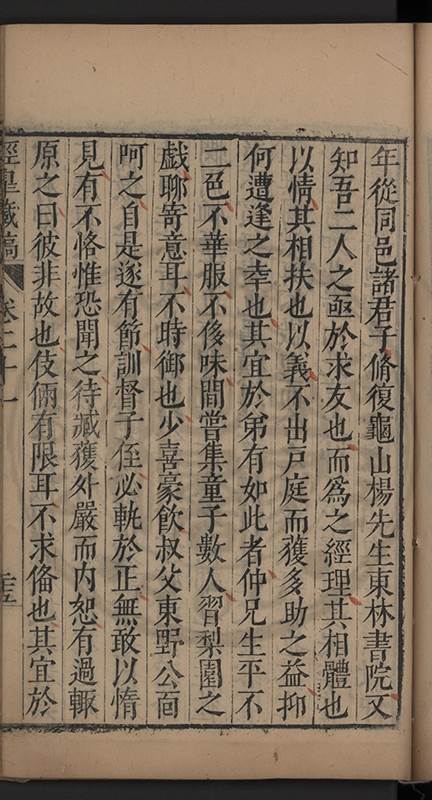 年從同邑諸君子脩復龜山楊先生東林書院又
知吾二人之亟於求友也而爲之經理其相體也
以情其相扶也以義不出戸庭而獲多助之益抑
何遭逢之幸也其宜於弟有如此者仲兄生平不
二色不華服不侈味間嘗集童子數人習梨園之
戲聊寄意耳不時御也少喜豪飲叔父東野公靣
呵之自是遂有節訓督子侄必軌於正無敢以惰
見有不恪惟恐聞之待臧獲外嚴而内恕有過輙
原之曰彼非故也伎倆有限耳不求俻也其宜於
涇臯藏稿
卷二十一
二十五